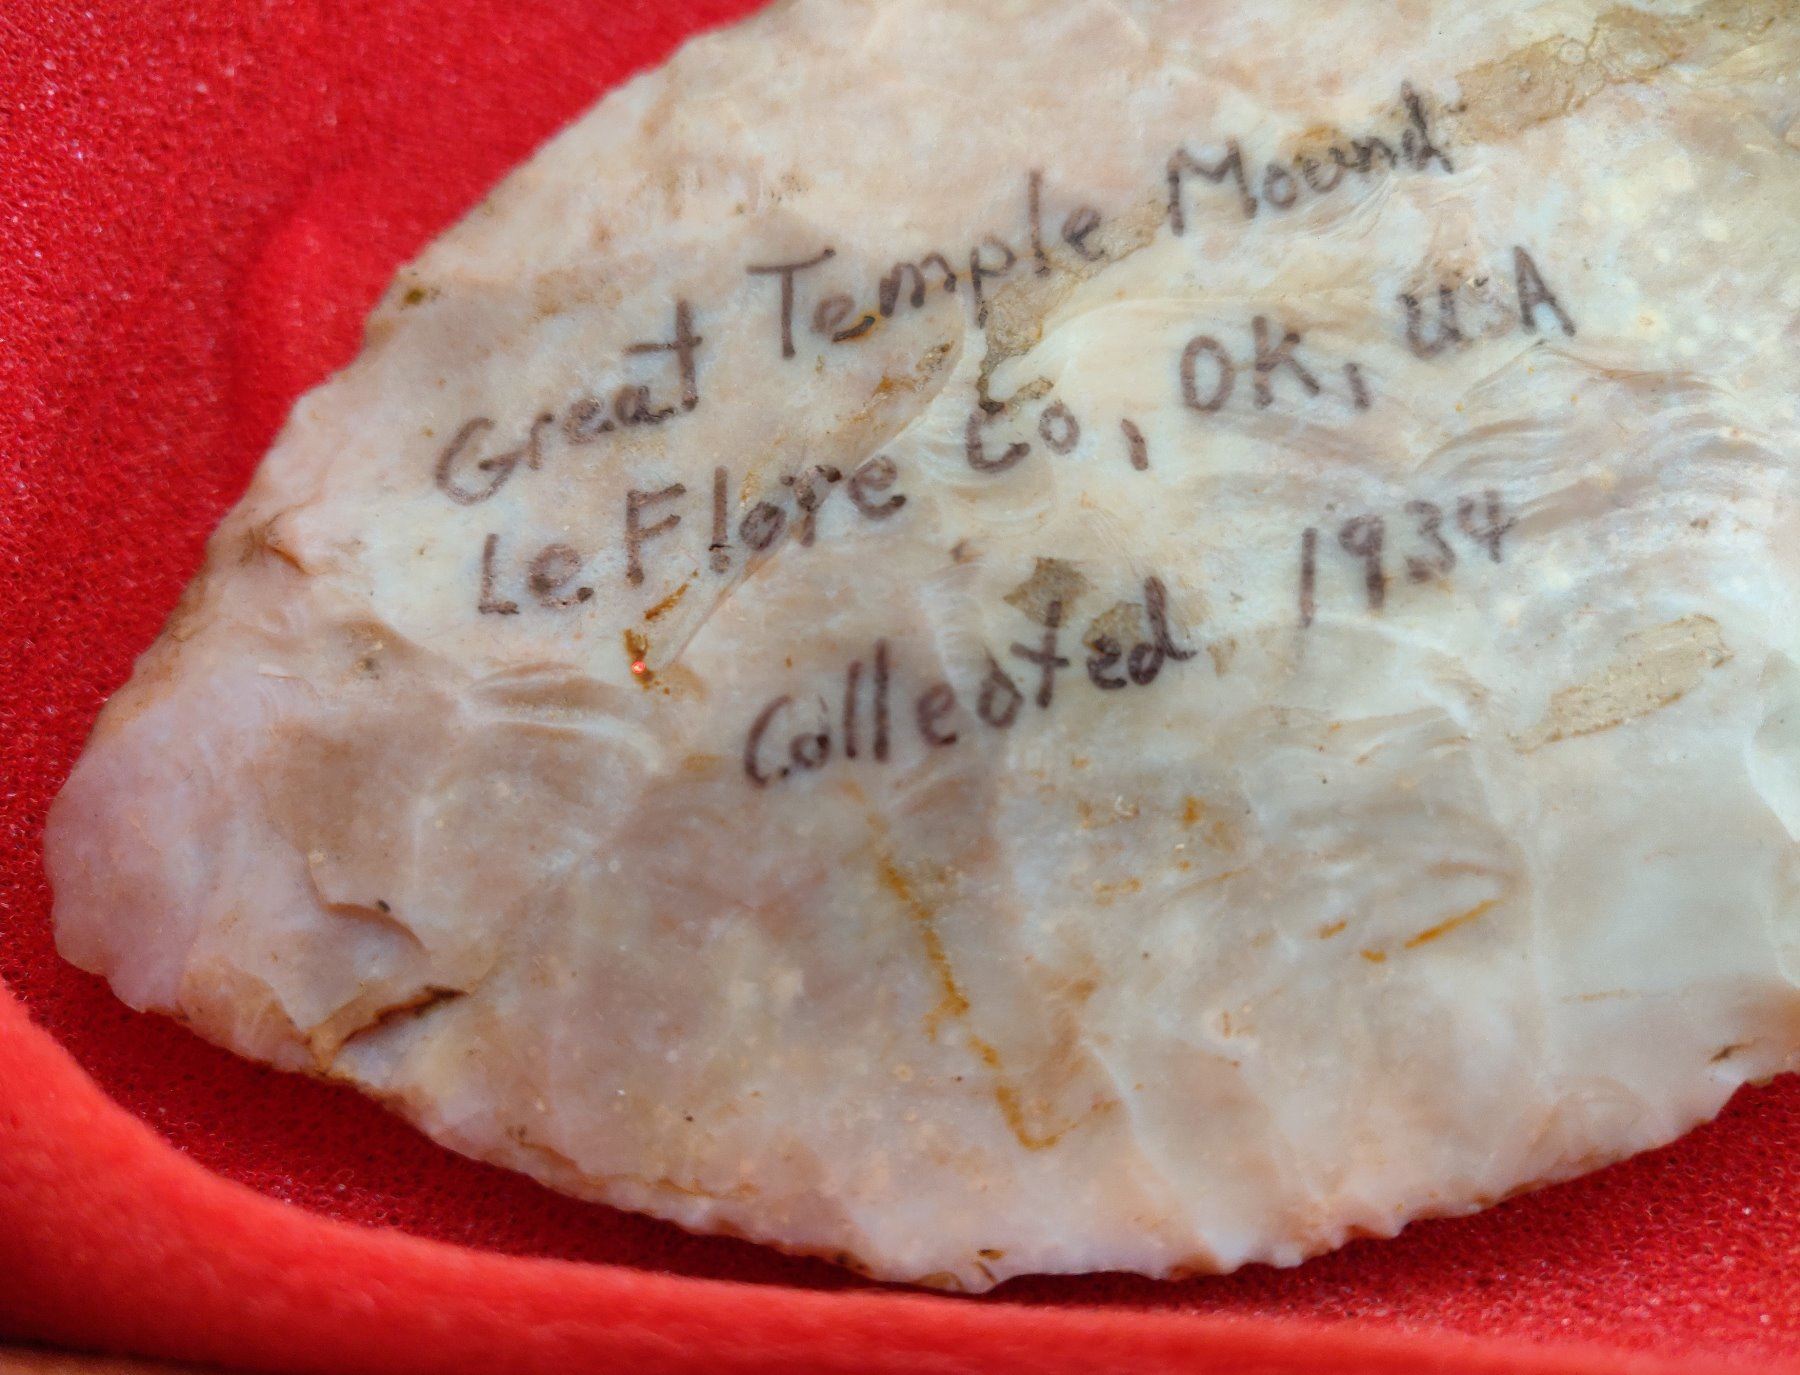 Great Temple Mound
Le Flore Co, OK, USA
Collected 1934